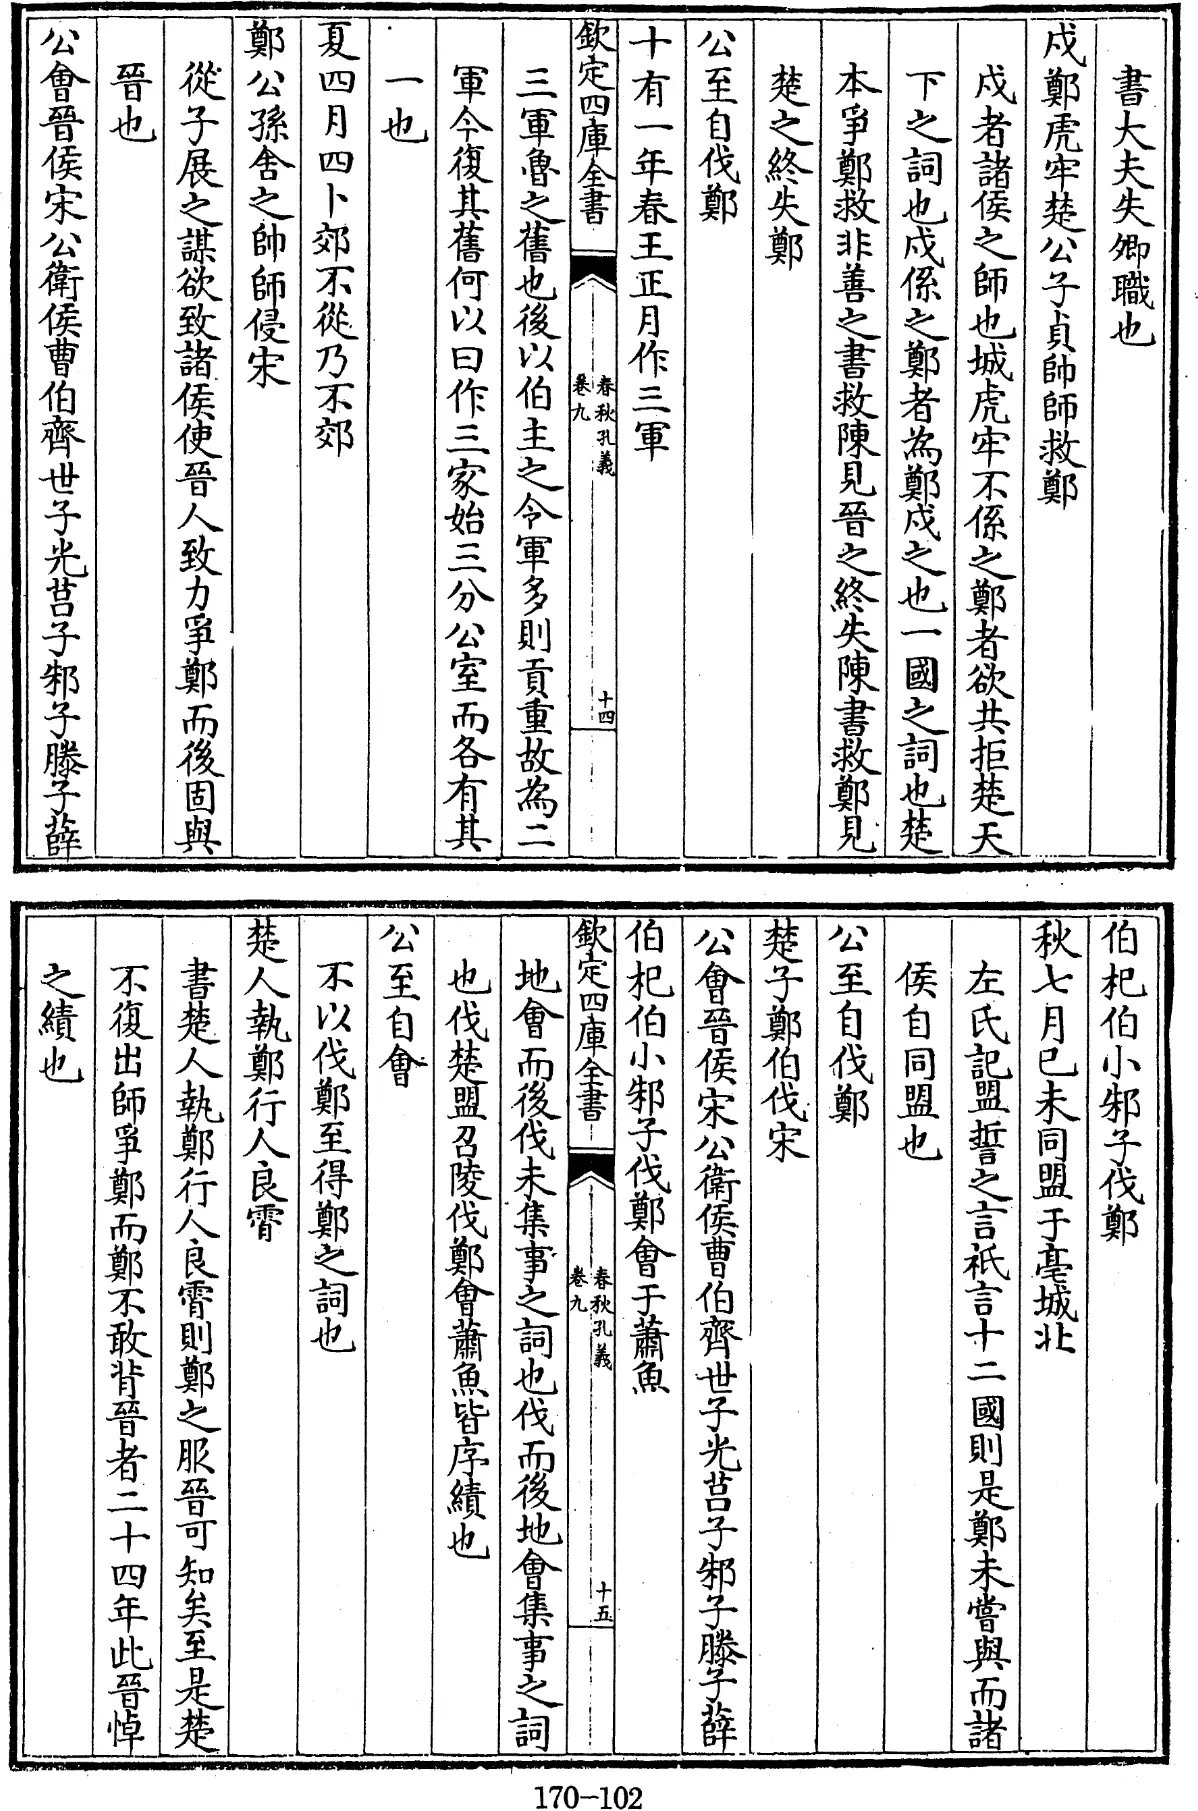 書大夫失卿職也
戍鄭虎牢楚公子貞帥師救鄭
戍者諸侯之師也城虎牢不係之鄭者欲共拒楚天
下之詞也戍係之鄭者為鄭戍之也一國之詞也楚
本爭鄭救非善之書救陳見晉之終失陳書救鄭見
楚之終失鄭
公至自伐鄭
十有一年春王正月作三軍
欽定四庫全書
春秋孔義
卷九
十四
三軍魯之舊也後以伯主之令軍多則貢重故為二
軍今復其舊何以曰作三家始三分公室而各有其
一也
夏四月四卜郊不從乃不郊
鄭公孫舍之帥師侵宋
從子展之謀欲致諸侯使晉人致力爭鄭而後固與
晉也
公會晉侯宋公衛侯曹伯齊世子光莒子邾子滕子薛
伯杞伯小邾子伐鄭
秋七月己未同盟于亳城北
左氏記盟誓之言祇言十二國則是鄭未嘗與而諸
侯自同盟也
公至自伐鄭
楚子鄭伯伐宋
公會晉侯宋公衛侯曹伯齊世子光莒子邾子滕子薛
伯杞伯小邾子伐鄭會于蕭魚
欽定四庫全書
春秋孔義
卷九
十五
地會而後伐未集事之詞也伐而後地會集事之詞
也伐楚盟召陵伐鄭會蕭魚皆序績也
公至自會
不以伐鄭至得鄭之詞也
楚人執鄭行人良霄
書楚人執鄭行人良霄則鄭之服晉可知矣至是楚
不復出師爭鄭而鄭不敢背晉者二十四年此晉悼
之績也
170-102